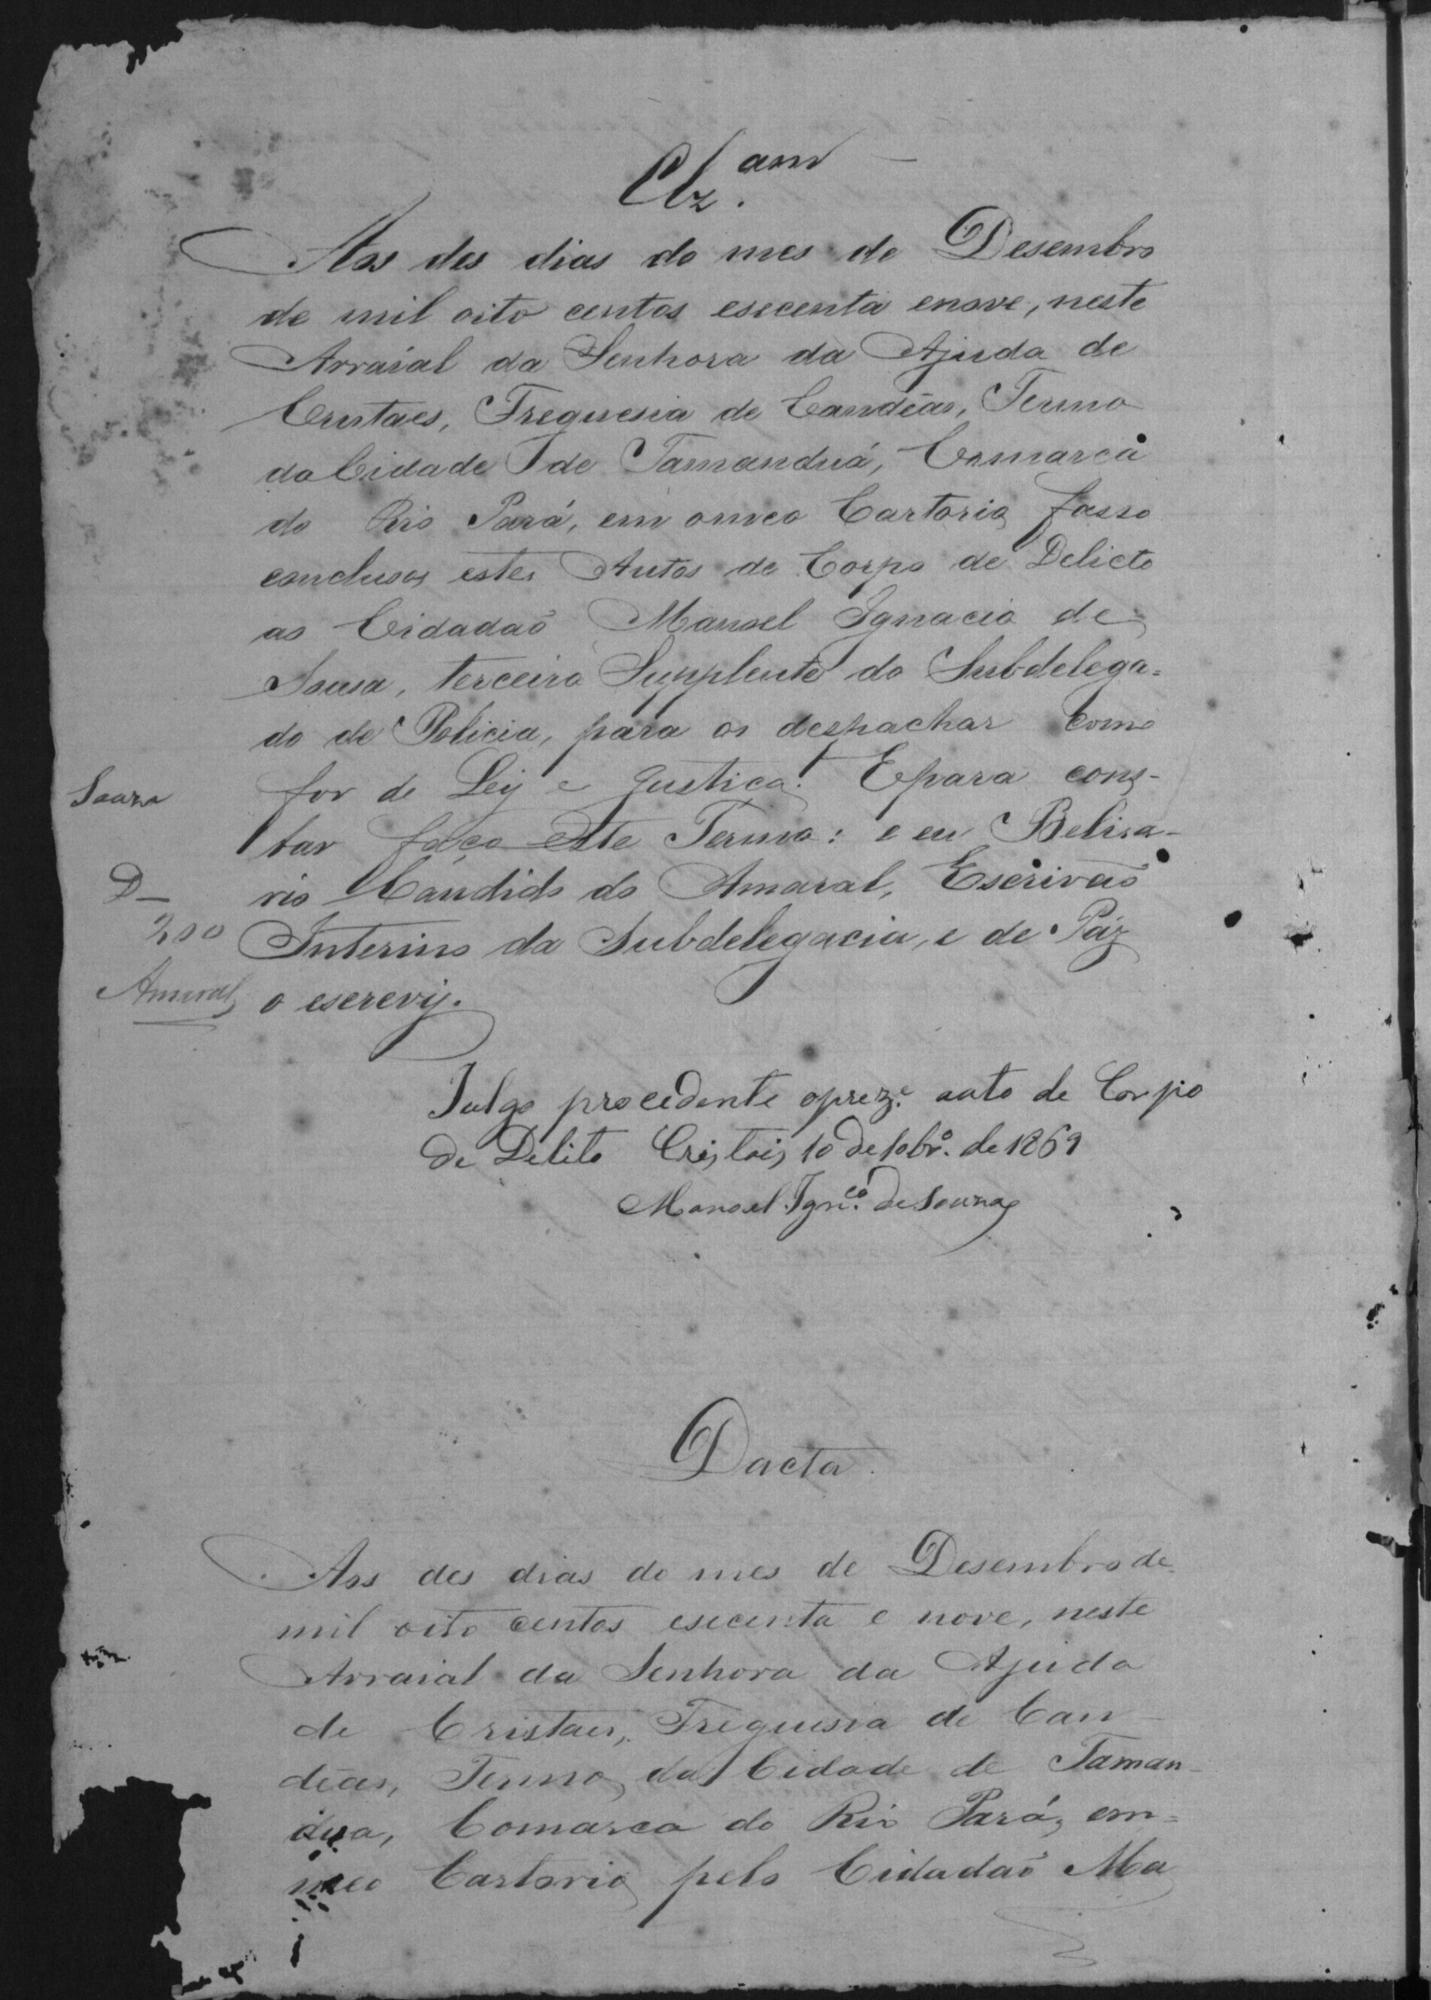 Clz.am
Aos des dias do mes de Desembro
de mil oito centos esecenta enove, neste
Arraial da Senhora da Ajuda de
Cristaes, Freguesia de Candêas, Termo
da Cidade de Tamanduá, Comarca
do Rio Pará, em omeo Cartorio fasso
conclusos estes Autos de Corpo de Delicto
ao Cidadaõ Manoel Ignacio de
Sousa, terceiro Supplente do Subdelega=
do de Policia, para os despachar como
for de Ley e Justiça. Epara cons-
tar faço este Termo: e eu Belisa-
rio Candido do Amaral, Escrivaõ
Interino da Subdelegacia, e de Paz
o escrevy.
Souza
D—
200
Amaral
Julgo procedente oprez.e auto de Corpo
de Delito Cristais 10 de 10br.o de 1869
Manoel Ign.co de Souza
Dacta
Aos des dias do mes de Desembro de
mil oito centos esecenta e nove, neste
Arraial da Senhora da Ajuda
de Cristaes, Freguesia de Can-
dêas, Termo da Cidade de Taman-
dua, Comarca do Rio Pará, em=
meo Cartorio pelo Cidadaõ Ma